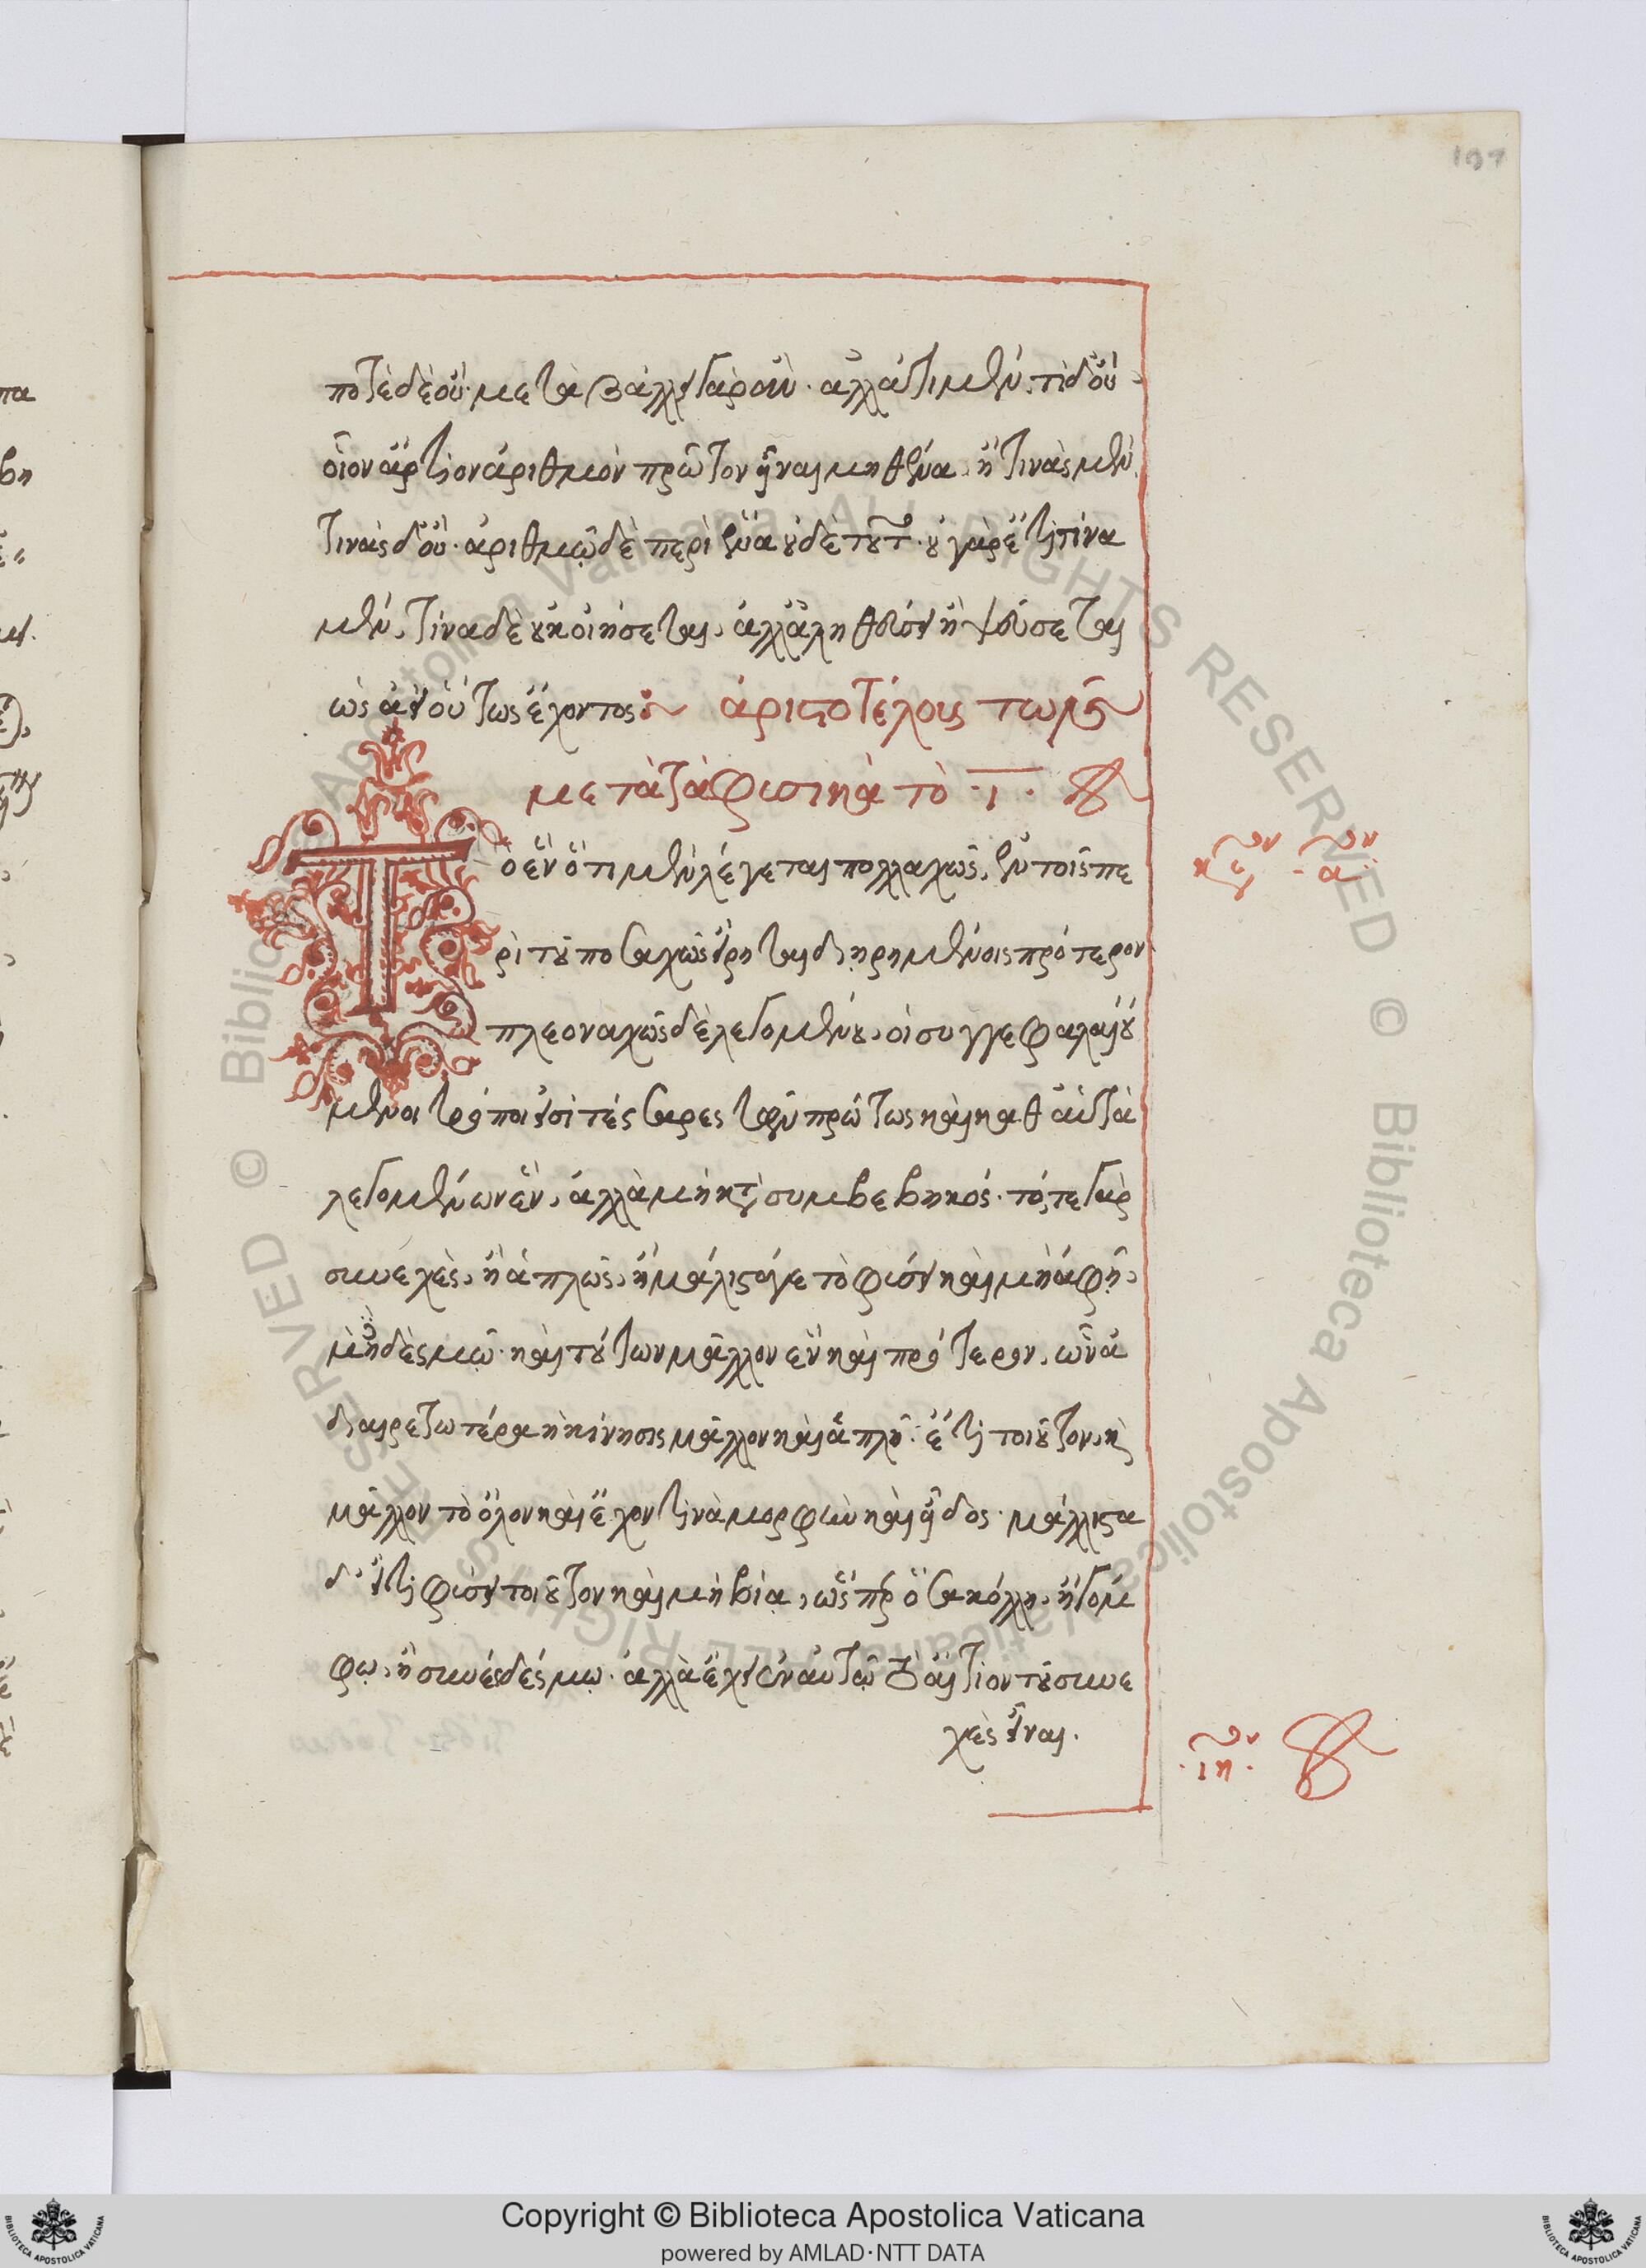 197
ποτὲ δὲ οὔ· μεταβάλλει γὰρ οὔ· ἀλλά τι μὲν, τὶ δ' οὔ
οἷον ἄρτιον ἀριθμὸν πρῶτον εἶναι μηθένα, ἤ τινὰς μὲν,
τινὰς δ' οὔ· ἀριθμῷ δὲ περὶ ἕνα οὐδὲ τοῦτ· οὐ γὰρ ἔτι τίνα
μὲν, τίνα δὲ οὐκ οἰήσεται, ἀλλ' ἀληθεύσει ἢ ψεύσεται
ὡς ἀεὶ οὕτως ἔχοντος:~ ἀριστοτέλους τῶν
μετὰ τὰ φυσικὰ τὸ ·ι·
ὸ ἓν ὅτι μὲν λέγεται πολλαχῶς, ἐν τοῖς πε
ρὶ τοῦ ποσαχῶς εἴρηται διῃρημένοις πρότερον
πλεοναχῶς δὲ λεγομένου, οἱ συγκεφαλαιού
μενοι τρόποι εἰσὶ τέσσαρες τῶν πρώτως καὶ καθ' αὑτὰ
λεγομένων ἓν, ἀλλὰ μὴ κατὰ συμβεβηκός· τό, τε γὰρ
συνεχὲς, ἢ ἁπλῶς, ἢ μάλιστά γε τὸ φύσει καὶ μὴ ἁφῇ,
μὴ δὲ δεσμῷ· καὶ τούτων μᾶλλον ἓν καὶ πρότερον, ὧν ἀ
διαιρετωτέρα ἡ κίνησις μᾶλλον καὶ ἁπλῆ· ἔτι τοιοῦτον, καὶ
μᾶλλον τὸ ὅλον καὶ ἔχον τινὰ μορφὴν καὶ εἶδος· μάλλιστα
δ' εἴ τι φύσει τοιοῦτον καὶ μὴ βίᾳ, ὥσπερ ὅσα κόλλῃ, ἢ γόμ
φῳ, ἢ συνδέσμῳ· ἀλλὰ ἔχει ἐν αὑτῷ τὸ αἴτιον τοῦ συνε
χὲς εἶναι.